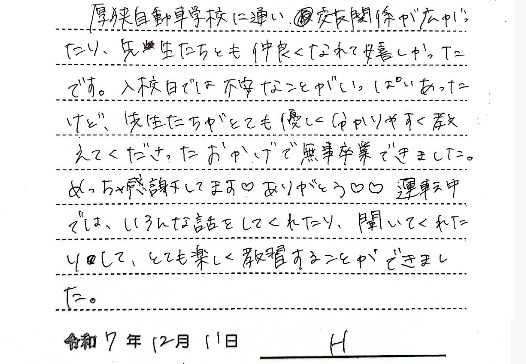 厚狭自動車学校に通い、交友関係が広がっ
たり、先生たちとも仲良くなれて嬉しかった
です。入校日では不安なことがいっぱいあった
けど、先生たちがとても優しく分かりやすく教
えてくださったおかげで無事卒業できました。
めっちゃ感謝してます♡ありがとう♡♡ 運転中
では、いろんな話をしてくれたり、聞いてくれた
りして、とても楽しく教習することができまし
た。
令和7年12月11日 H